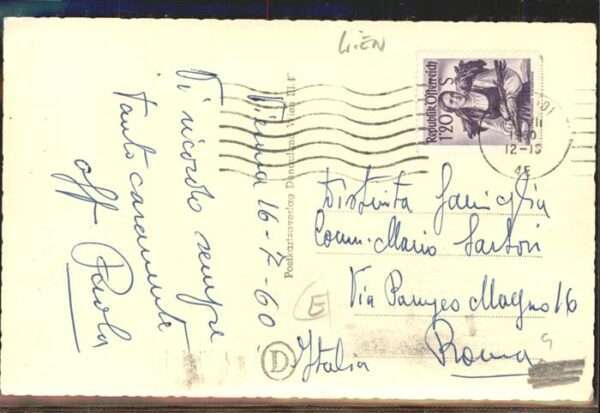 WIEN
Vienna 16-7-60
Vi ricordo sempre
tanto caramente
aff. Paola
Postkartenverlag Wien
Republik Österreich
1'20 S
12-13
Distinta Famiglia
Comm. Mario Sartori
Via Pompeo Magno 16
Roma
Italia
E
D